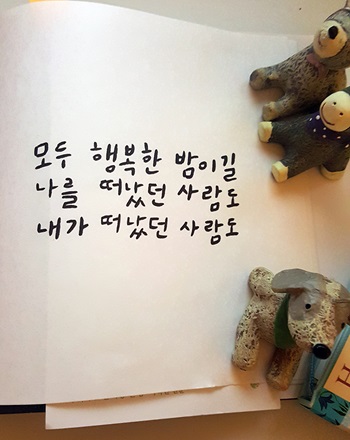 모두 행복한 밤이길
나를 떠났던 사람도
내가 떠났던 사람도
H